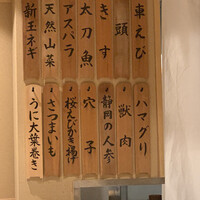 車えび
頭
きす
太刀魚
アスパラ
天然山菜
新玉ネギ
ハマグリ
獣肉
静岡の人参
穴子
桜えびかき揚げ
さつまいも
うに大葉巻き